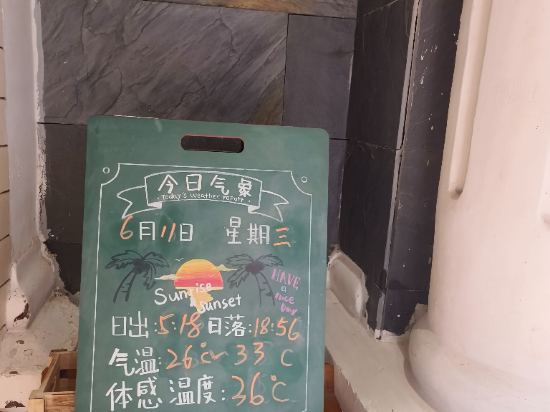 今日气象
Today's weather report
6月11日 星期三
HAVE
a
nice
Day
Sunrise
&sunset
日出:5:18 日落:18:56
气温:26℃~33℃
体感温度:36℃